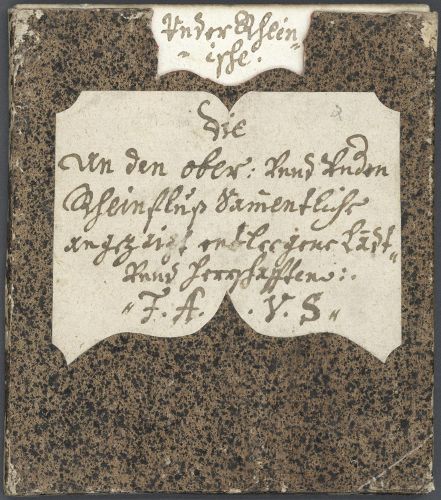 Under Rhein-
ische.
Die
An den ober: Vnnd Vnden
Rheinfluß Sammentliche
angezaigt entleegene Lädt
Vnnd Herrschafften:.
"F. A. . V. S"